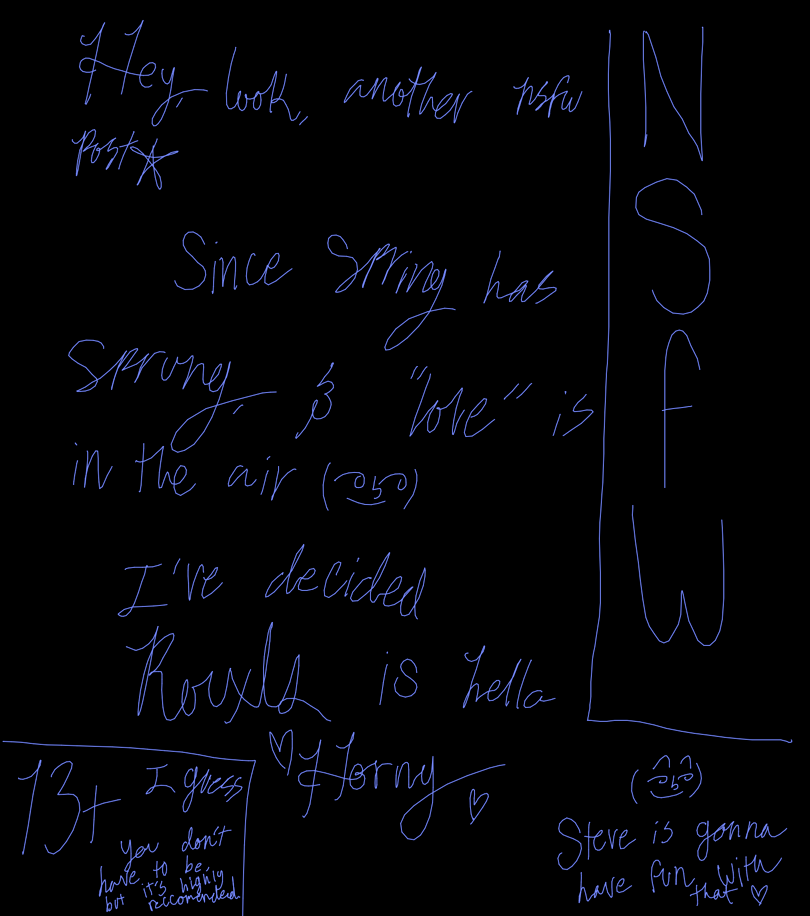 Hey, look, another nsfw
post☆
Since Spring has
sprung, & "love" is
in the air
I've decided
is hella
♡ Horny ♡
N
S
F
W
13+ I guess
you don't
have to be,
but it's highly
reccomended
Steve is gonna
have fun with
that ♡